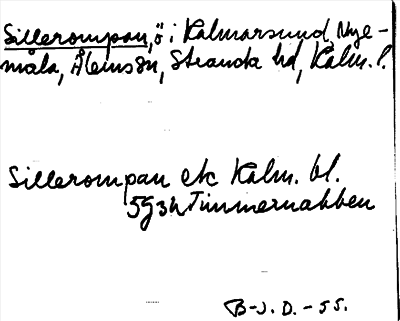 Sillerompan, ö i Kalmarsund, Nye-
måla, Ålems sn, Stranda hd, Kalm. l.
Sillerompan ek Kalm. bl.
5g3h Timmernabben
B-J. D. - 55.